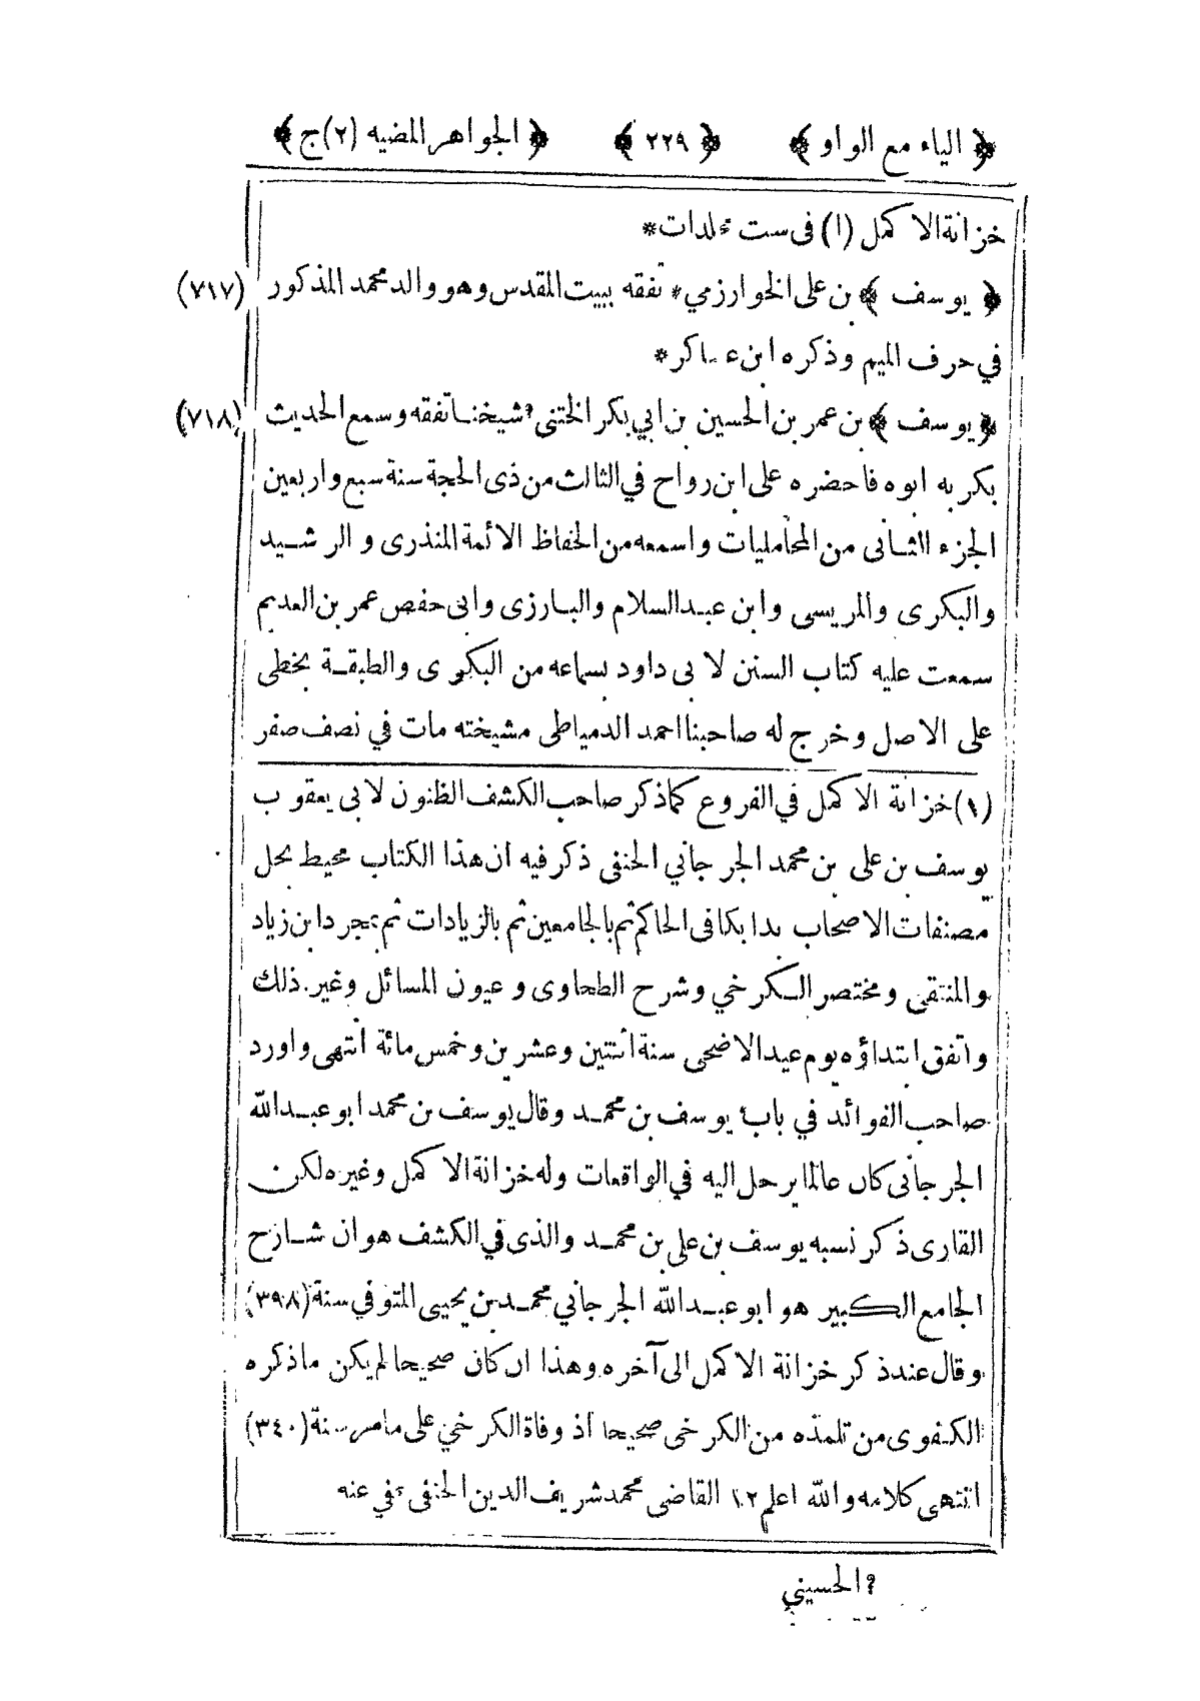 ﴿ الياء مع الواو ﴾ ﴿ ٢٢٩ ﴾ ﴿ الجواهر المضيه (٢) ج ﴾
خزانة الاكمل (١) فى ست مجلدات *
﴿ يوسف ﴾ بن على الخوارزمي * تفقه ببيت المقدس وهو والد محمد المذكور (٧١٧)
في حرف الميم وذكره ابن عساكر *
﴿ يوسف ﴾ بن عمر بن الحسين بن ابي بكر الختنى ? شيخنا تفقه وسمع الحديث (٧١٨)
بكر به ابوه فاحضره على ابن رواح في الثالث من ذى الحجة سنة سبع واربعين
الجزء الثانى من المحامليات واسمعه من الحفاظ الائمة المنذرى والرشيد
والبكرى والمريسى وابن عبد السلام والبارزى وابى حفص عمر بن العديم
سمعت عليه كتاب السنن لابى داود بسماعه من البكرى والطبقة بخطى
على الاصل وخرج له صاحبنا احمد الدمياطى مشيخته مات في نصف صفر
(١) خزانة الاكمل في الفروع كماذكر صاحب الكشف الظنون لابى يعقوب
يوسف بن على بن محمد الجرجاني الحنفى ذكر فيه ان هذا الكتاب محيط بجل
مصنفات الاصحاب بدا بكافى الحاكم ثم بالجامعين ثم بالزيادات ثم بمجرد ابن زياد
والمنتقى ومختصر الكرخي وشرح الطحاوى وعيون المسائل وغير ذلك
واتفق ابتداؤه يوم عيد الاضحى سنة اثنتين وعشرين وخمس مائة انتهى واورد
صاحب الفوائد في باب يوسف بن محمد وقال يوسف بن محمد ابو عبد الله
الجرجانى كان عالما يرحل اليه في الواقعات وله خزانة الاكمل وغيره لكن
القارى ذكر نسبه يوسف بن على بن محمد والذى في الكشف هو ان شارح
الجامع الكبير هو ابو عبد الله الجرجاني محمد بن يحيى المتوفي سنة (٣٩٨)
وقال عند ذكر خزانة الاكمل الى آخره وهذا ان كان صحيحا لم يكن ماذكره
الكفوى من تلمذه من الكرخى صحيحا اذ وفاة الكرخي على مامر سنة (٣٤٠)
انتهى كلامه والله اعلم ١٢ القاضى محمد شريف الدين الحنفى عفي عنه
? الحسيني